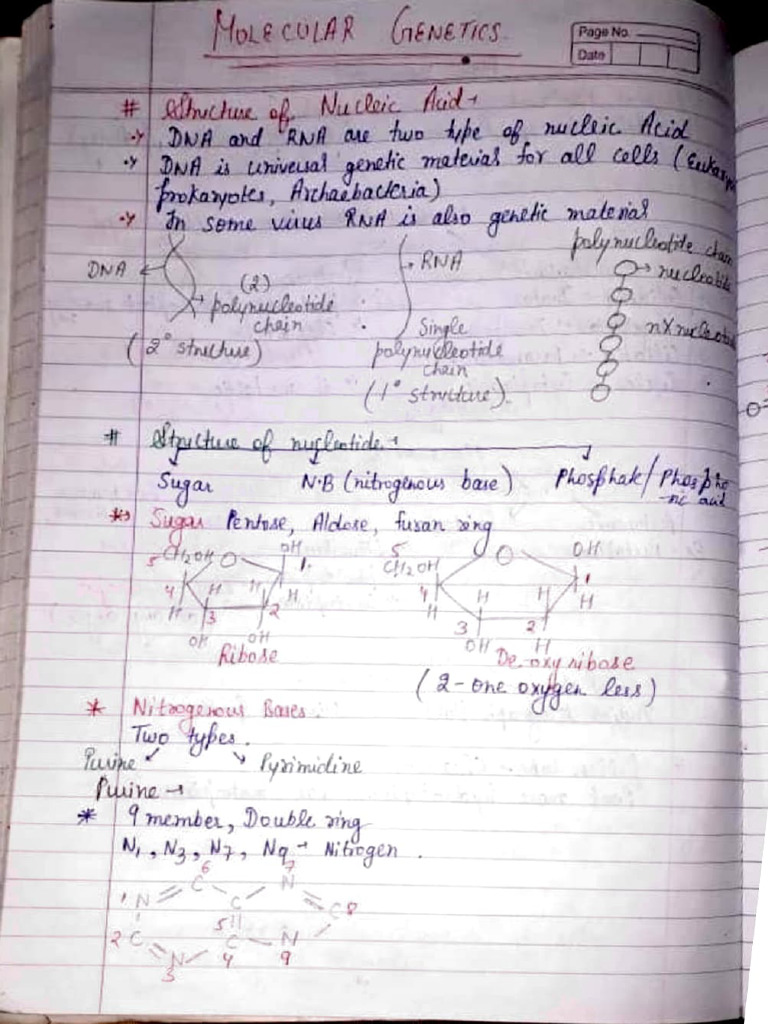 MOLECULAR GENETICS.
Page No.
Date
# Structure of Nucleic Acid →
→ DNA and RNA are two type of nucleic Acid
→ DNA is universal genetic material for all cells (Eukaryo
prokaryotes, Archaebacteria)
→ In some virus RNA is also genetic material
DNA
(2)
polynucleotide
chain
(2° structure)
RNA
Single
polynucleotide
chain
(1° structure).
polynucleotide chain
nucleotide
nX nucleoti
# Structure of nucleotide →
Sugar N·B (nitrogenous base) Phosphate/Phospho
-ric acid
*→ Sugar Pentose, Aldose, furan ring
5 CH2OH O OH 1
4 H H H
H 3 2 H
OH OH
Ribose
5 CH2OH O OH
4 1
H H H H
3 2
OH H
De oxyribose
(2-one oxygen less)
* Nitrogenous Bases.
Two types.
Purine Pyrimidine
Purine →
* 9 member, Double ring
N1, N3, N7, N9 → Nitrogen.
6 7
1 N C N
C C 8
5
2 C C N
N 4 9
3